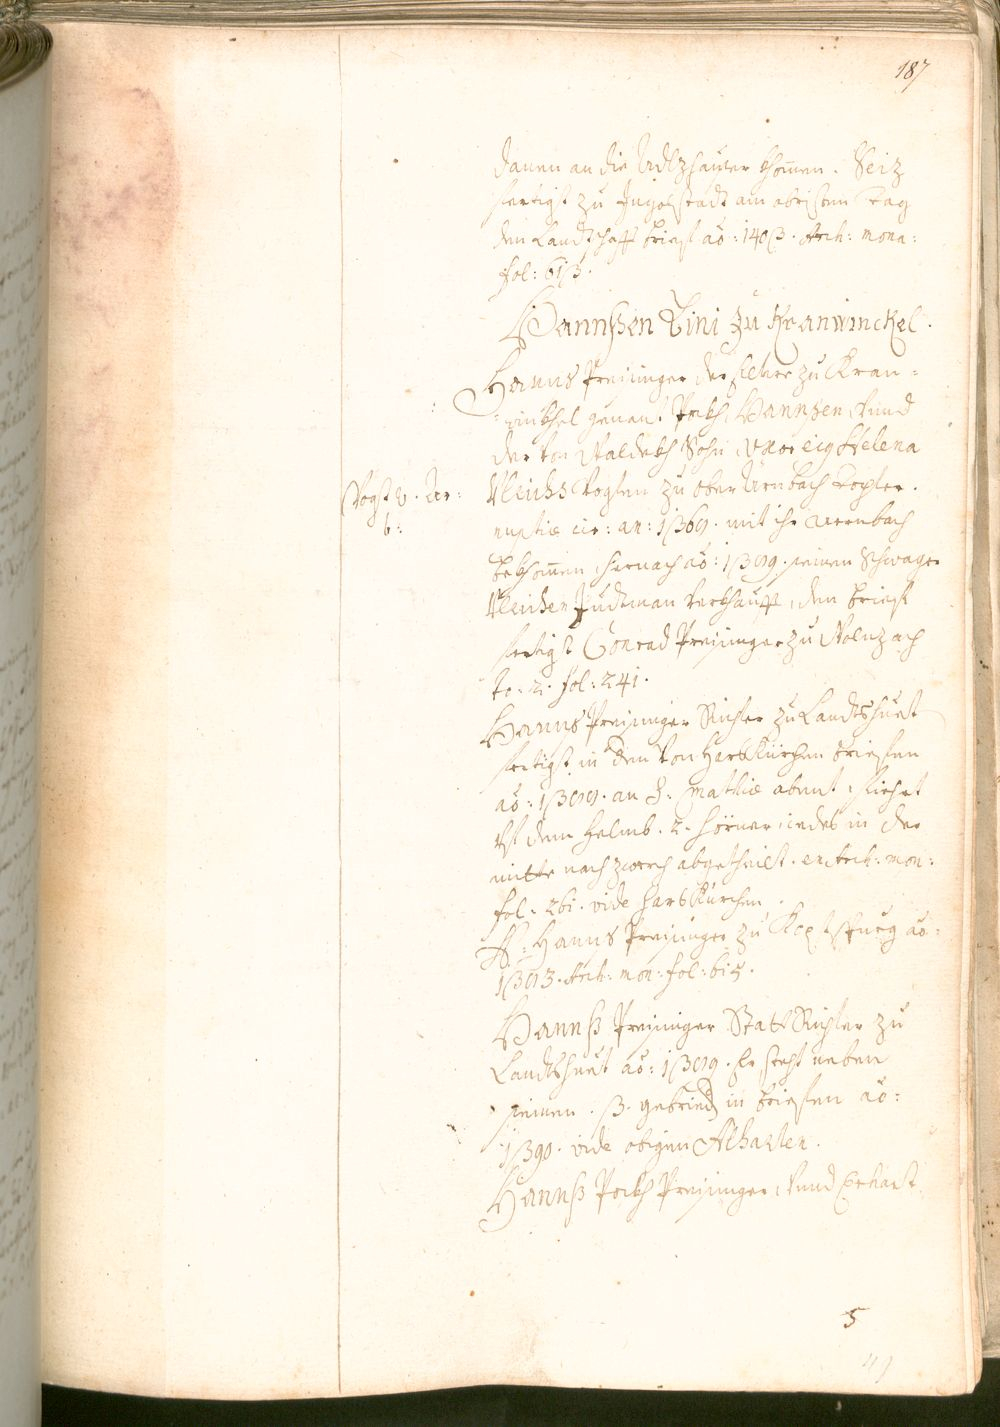 187
danen an die Adlzhauser khomen. Seiz
fertigt zu Ingolstadt am obristen tag
den Landtschafft brief ao: 1403. Arch: mona:
fol: 613.
Hannßen Lini zu Kranwinckel.
Hanns Preisinger der elter zu Kran=
winkhel genant Pockh, Hannßen, vnnd
der von Waldekh Sohn, vxor eig Helena
Vlrichs Vogten zu ober Arnbach dochter.
nuptiæ cir: an: 1369. mit ihr Arrnbach
bekhomen, hernach ao: 1389. seinen Schwager
Vlrichen Judtman verkhaufft, den brief
fertigt Conrad Preisinger zu Wolnzach
to: 2. fol: 241.
Vogt v. Ar:
b:
Hanns Preisinger Richter zu Landtshuet
fertigt in den von Harskürchen briefen
ao: 1389. an S: Mathiæ abent, fiehrt
vf dem Helmb. 2. hörner iedes in der
mitte nach zwerch abgetheilt. ex Arch: mon:
fol: 261. vide Harskürchen.
H: Hanns Preisinger zu Kopfspurg ao:
1393. Arch: mon: fol: 615.
Hannß Preisinger Statt Richter zu
Landtshuet ao: 1389. Er steht neben
seinen. 3. gebried in briefen ao:
1390. vide obigen Alharten.
Hannß Pockh Preisinger, vnnd Erhart
5
49